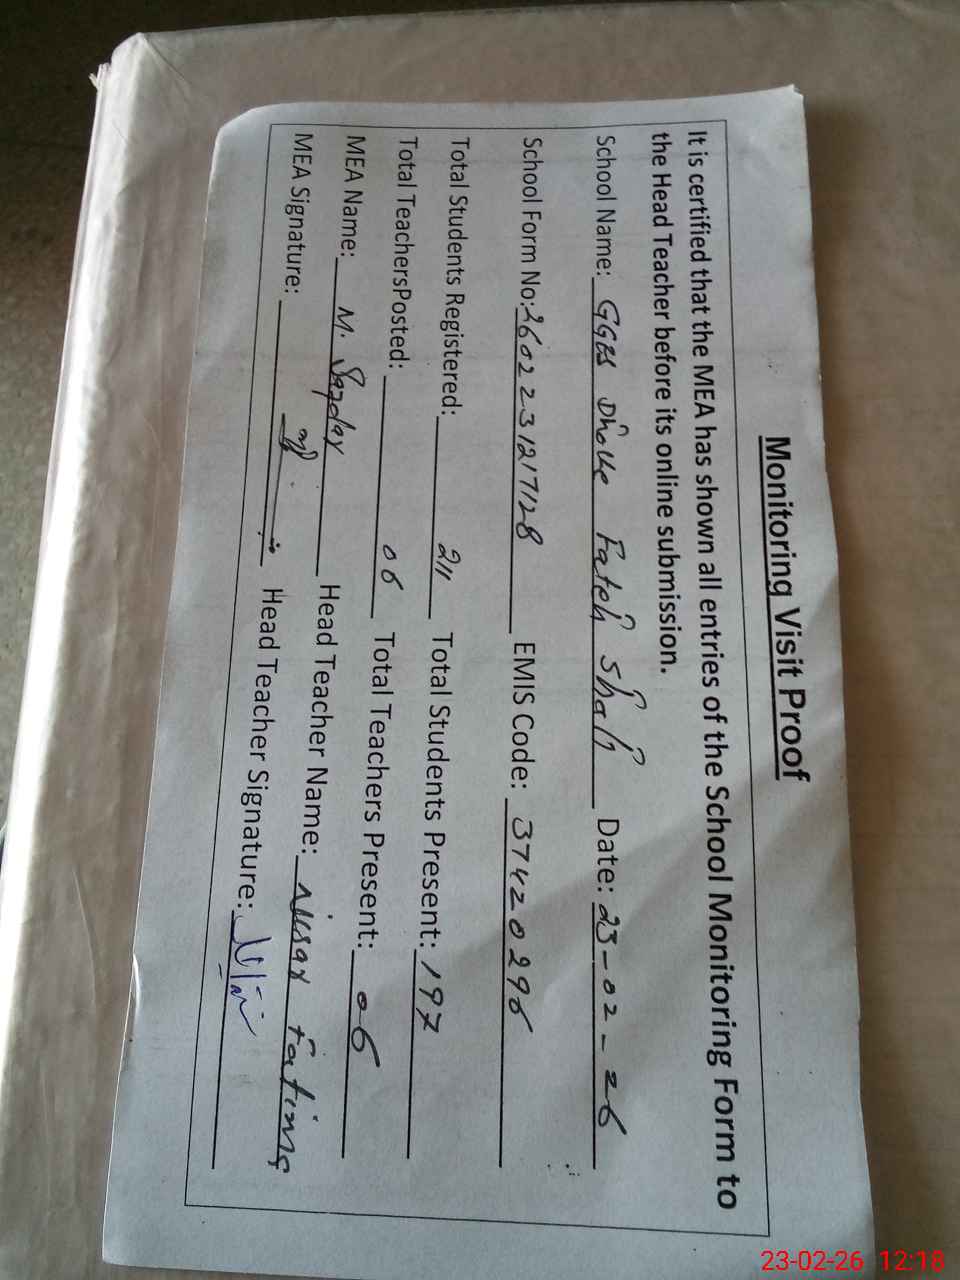 Monitoring Visit Proof
It is certified that the MEA has shown all entries of the School Monitoring Form to
the Head Teacher before its online submission.
School Name: GGES Dhoke Fateh Shah Date: 23-02-26
School Form No: 2602231217128 EMIS Code: 37420296
Total Students Registered: 211 Total Students Present: 197
Total TeachersPosted: 06 Total Teachers Present: 06
MEA Name: M. Head Teacher Name: Nusar Fatima
MEA Signature: Head Teacher Signature:
23-02-26 12:18